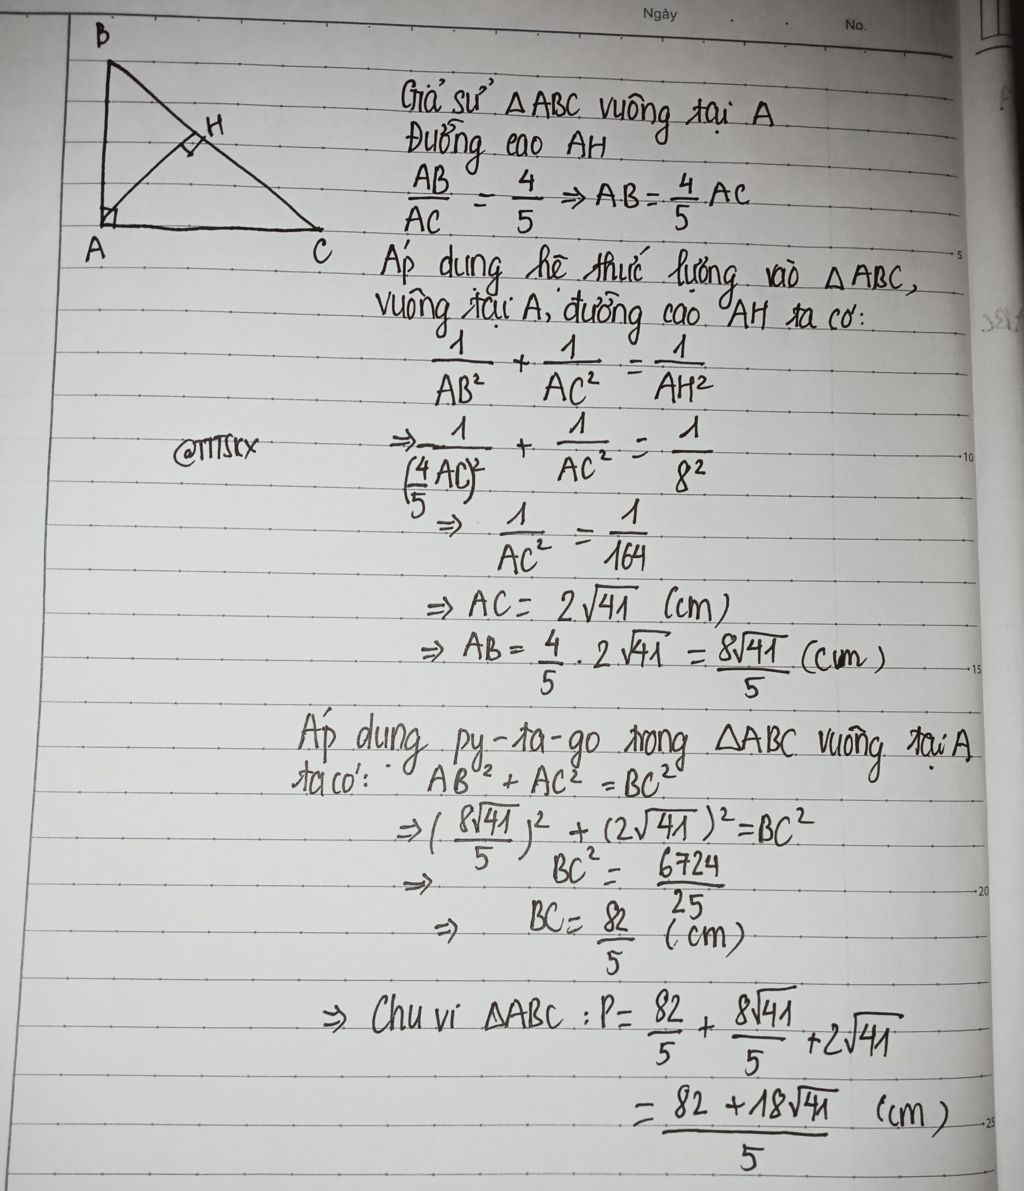 Ngày No.
B
H
A
C
Giả sử △ABC vuông tại A
Đường cao AH
AB/AC = 4/5 ⇒ AB = 4/5 AC
Áp dụng hệ thức lượng vào △ABC,
vuông tại A, đường cao AH ta có:
1/AB² + 1/AC² = 1/AH²
⇒ 1/(4/5 AC)² + 1/AC² = 1/8²
@TTTSKX
⇒ 1/AC² = 1/164
⇒ AC = 2√41 (cm)
⇒ AB = 4/5 . 2√41 = 8√41/5 (cm)
Áp dụng py-ta-go trong △ABC vuông tại A
ta có: AB² + AC² = BC²
⇒ (8√41/5)² + (2√41)² = BC²
⇒ BC² = 6724/25
⇒ BC = 82/5 (cm)
⇒ Chu vi △ABC : P = 82/5 + 8√41/5 + 2√41
= (82 + 18√41)/5 (cm)
5
10
15
20
25